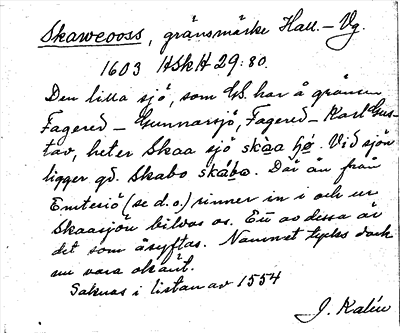 Skaweooss, gränsmärke Hall. – Vg.
1603 HSkH 29:80.
Den lilla sjö, som GS. har å gränsen
Fagered – Gunnarsjö, Fagered – Karl Gus-
tav, heter Skaa sjö skàa hø. Vid sjön
ligger gd. Skabo skábo. Där ån från
Emterið (se d.o.) rinner in i och ur
Skaasjön bildas os. Ett av dessa är
det som åsyftas. Namnet tycks dock
nu vara okänt.
Saknas i listan av 1554
J. Kalén